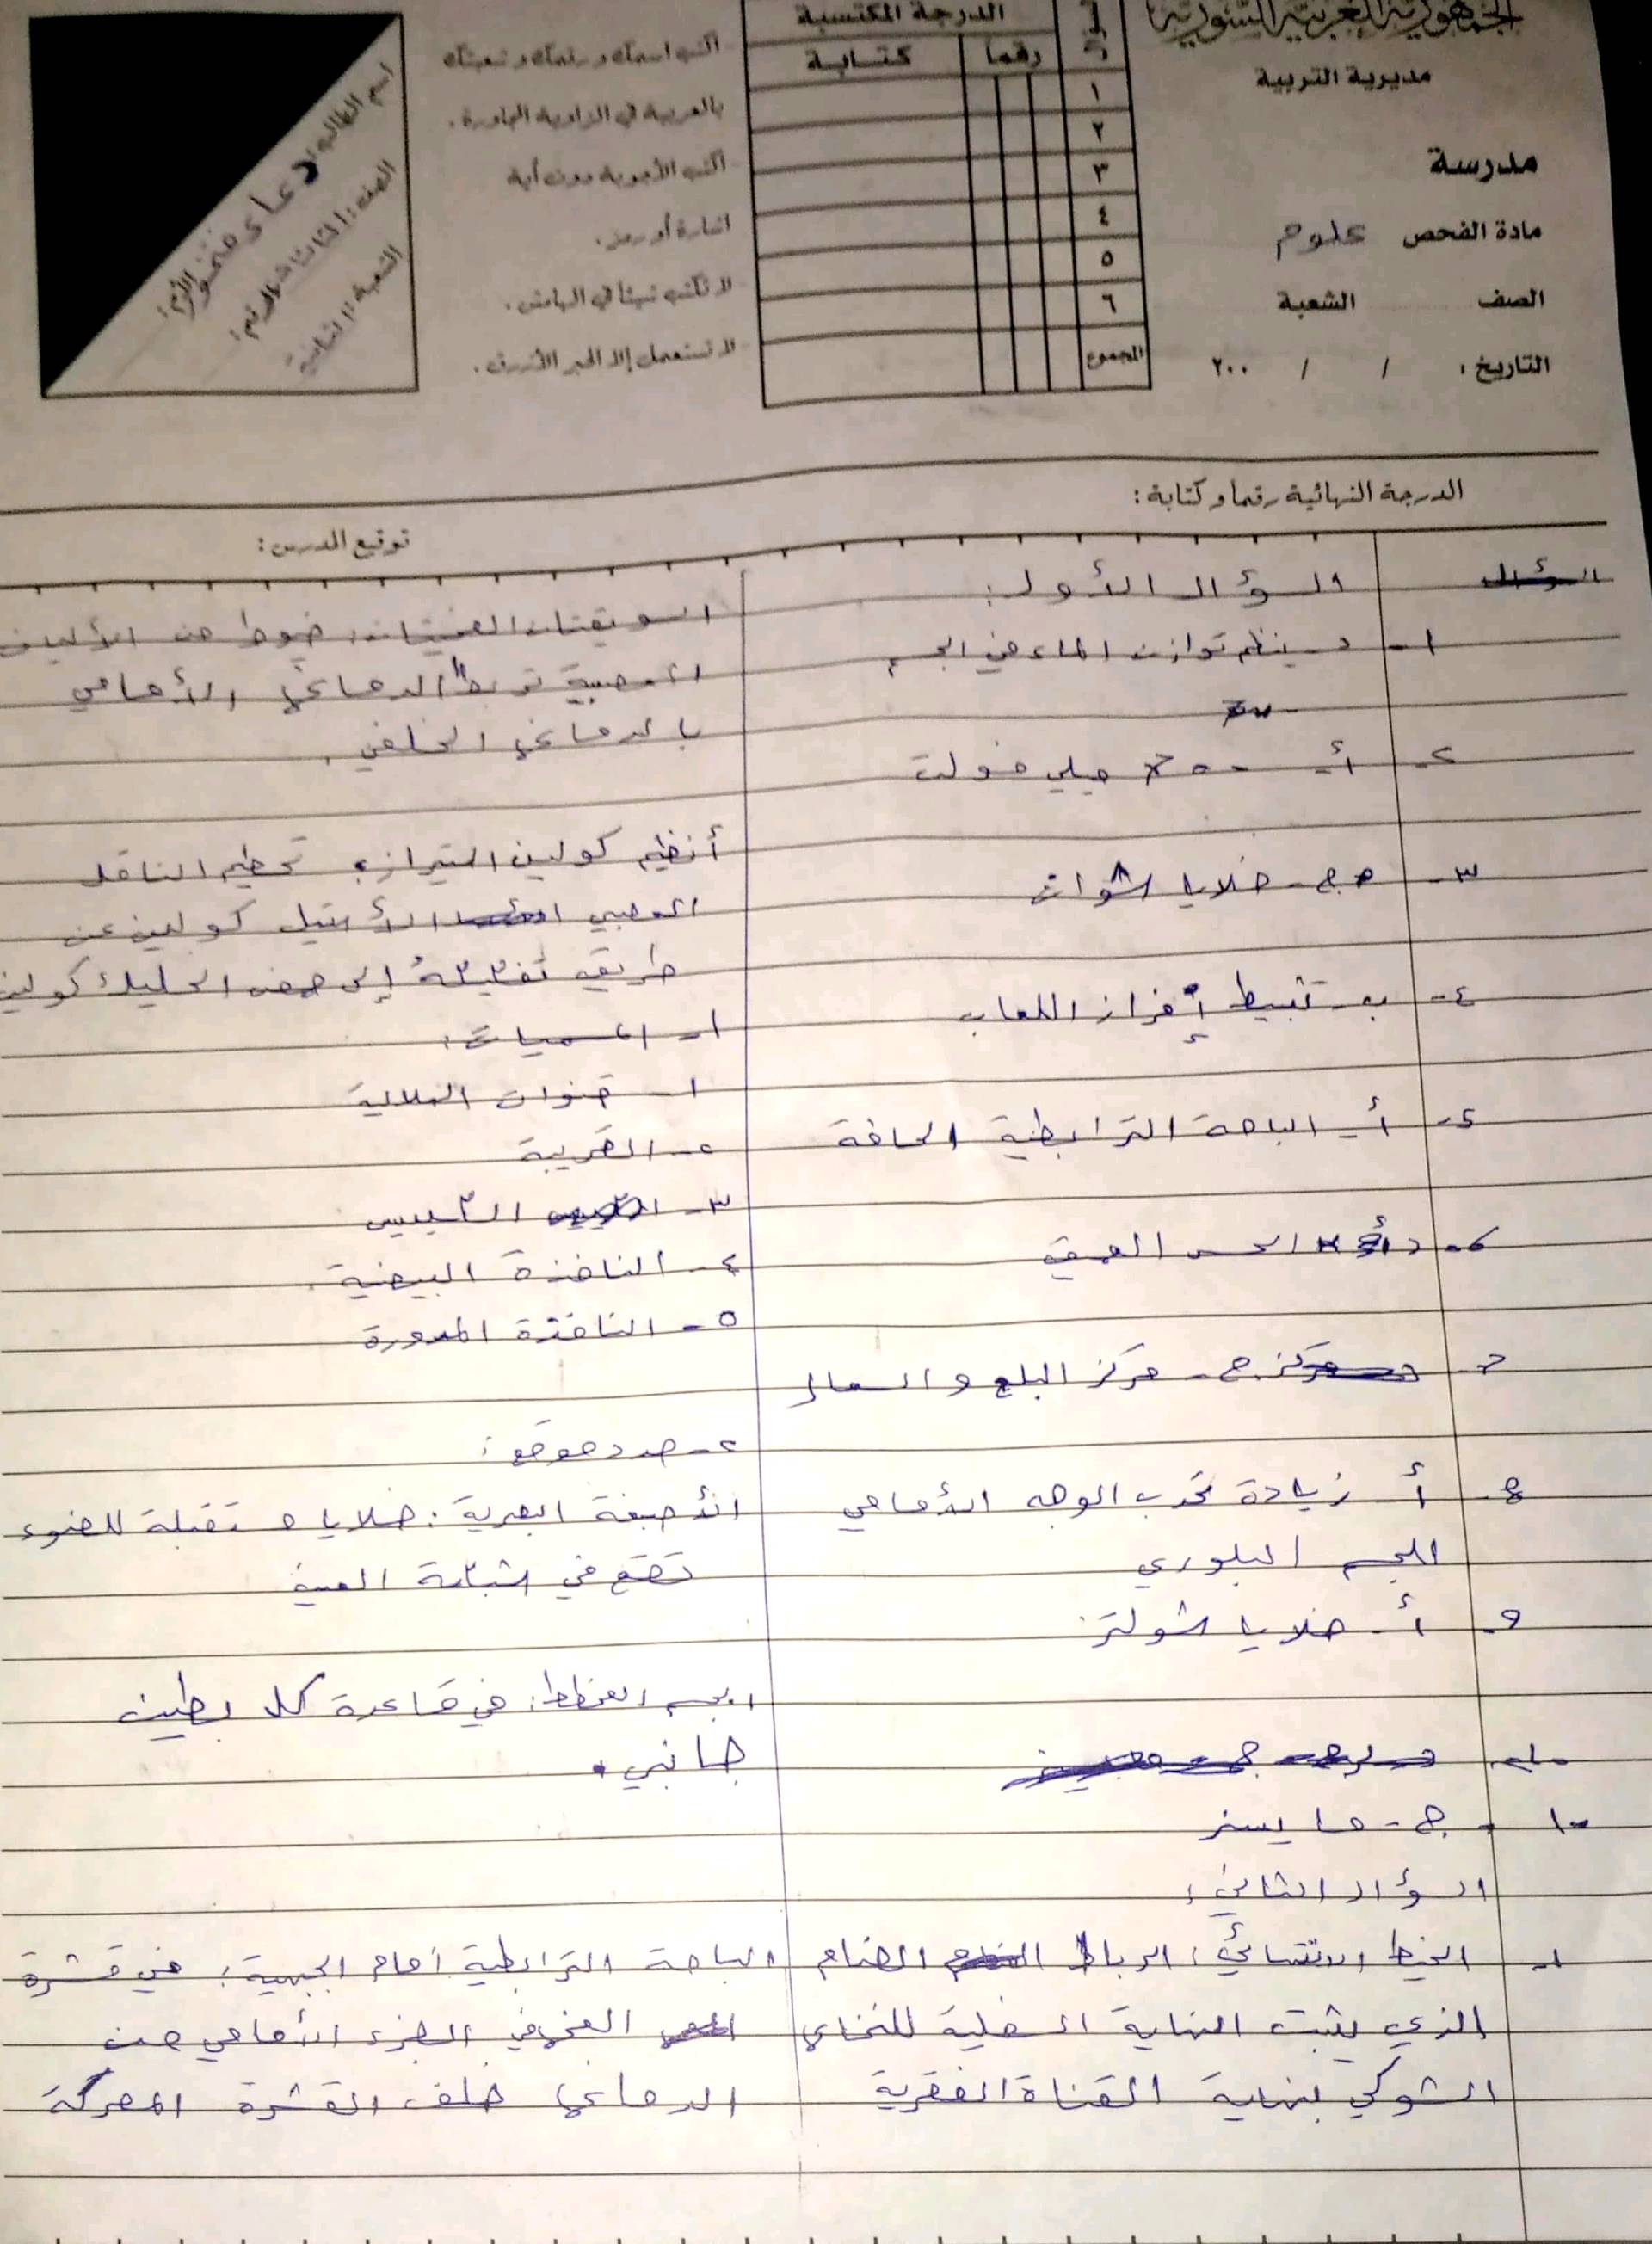 الجمهورية العربية السورية
مديرية التربية
مدرسة
مادة الفحص علوم
الصف الشعبة
التاريخ : / / ٢٠٠
الدرجة المكتسبة
رقماً كتابة
١
٢
٣
٤
٥
٦
المجموع
اكتب اسمك ورقمك وشعبتك
بالعربية في الزاوية المجاورة .
اكتب الأجوبة دون أية
اشارة أو رمز .
لا تكتب شيئاً في الهامش .
لا تستعمل إلا الحبر الأزرق .
اسم الطالب: دعاء
الصف: الرقم:
الشعبة: الثانية
الدرجة النهائية رقماً وكتابة :
توقيع المدرس :
السؤال الأول:
١- د- ينظم توازن الماء في الجسم
٢- أ- ميلي فولت
٣- ج- خلايا شوان
٤- ب- تثبيط إفراز اللعاب
٥- أ- الباحة الترابطية الحافة
٦- الحس العميق
٧- ج- مركز البلع والسعال
٨- أ- زيادة تحدب الوجه الأمامي
للجسم البلوري
٩- أ- خلايا شولتز
١٠- ج- مايسنر
السؤال الثاني:
١- الخيط الانتهائي: الرباط الضام
الذي يثبت النهاية السفلية للنخاع
الشوكي بنهاية القناة الفقرية
السويقتان المخيتان: خيوط من الألياف
العصبية تربط الدماغ الأمامي
بالدماغ الخلفي.
أنظيم كولين استيراز: تحطيم الناقل
العصبي الأستيل كولين عن
طريق تفككه إلى حمض الخليك كولين
١- المسميات:
١- قنوات الهلالية
٢- القريبة
٣- الكييس
٤- النافذة البيضية.
٥- النافذة المدورة
٢- حدد موقع:
الأصبغة البصرية: خلايا مستقبلة للضوء
تقع في شبكة العين
الجسم المخطط: في قاعدة كل بطين
جانبي.
الباحة الترابطية أمام الجبهية: في قشرة
المخ في الجزء الأمامي من
الدماغ خلف القشرة المحركة